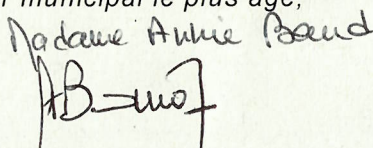 municipal le plus âgé,
Madame Annie Beaud